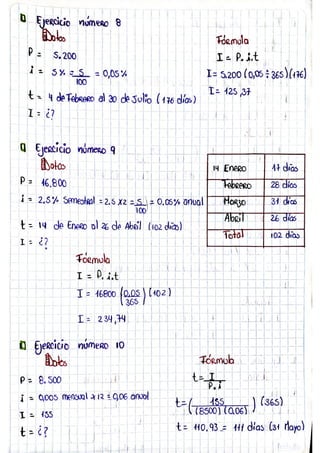 Ejercicio número 8
Datos
Fórmula
P = 5.200
I = P.i.t
i = 5% = 5/100 = 0,05%
I = 5.200 (0,05 ÷ 365)(176)
t = 4 de Febrero al 30 de Julio (176 días)
I = 125,37
I = ¿?
Ejercicio número 9
Datos
P = 16,800
i = 2.5% Semestral = 2.5 x2 = 5/100 = 0.05% anual
t = 14 de Enero al 26 de Abril (102 días)
I = ¿?
14 Enero 17 días
Febrero 28 días
Marzo 31 días
Abril 26 días
Total 102 días
Fórmula
I = P.i.t
I = 16800 (0.05/365)(102)
I = 234,74
Ejercicio número 10
Datos
Fórmula
P = 8.500
t = I/P.i
i = 0,005 mensual x 12 = 0,06 anual
I = 155
t = (155/(8500)(0.06)) (365)
t = ¿?
t = 110,93 = 111 días (31 Mayo)